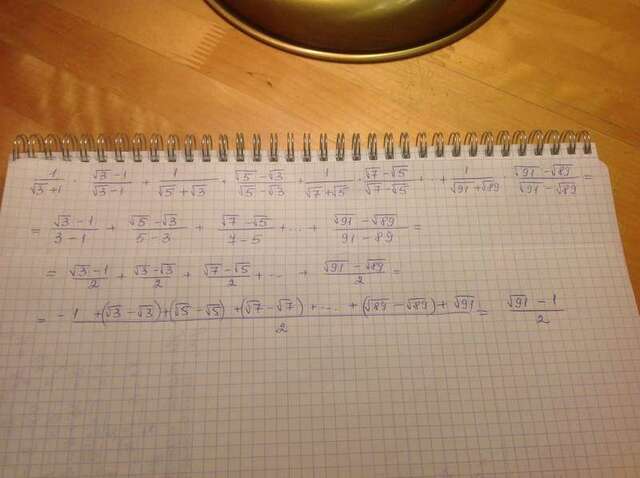 1/(√3+1) · (√3-1)/(√3-1) + 1/(√5+√3) · (√5-√3)/(√5-√3) + 1/(√7+√5) · (√7-√5)/(√7-√5) + .. + 1/(√91+√89) · (√91-√89)/(√91-√89) =
= (√3-1)/(3-1) + (√5-√3)/(5-3) + (√7-√5)/(7-5) + ... + (√91-√89)/(91-89) =
= (√3-1)/2 + (√3-√3)/2 + (√7-√5)/2 + ... + (√91-√89)/2 =
= (-1 + (√3-√3) + (√5-√5) + (√7-√7) + ... + (√89-√89) + √91)/2 = (√91-1)/2